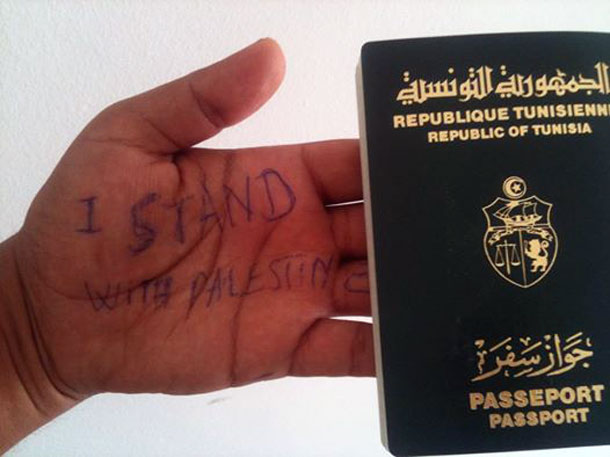 I STAND
WITH PALESTINE
الجمهورية التونسية
REPUBLIQUE TUNISIENN
REPUBLIC OF TUNISIA
جواز سفر
PASSEPORT
PASSPORT